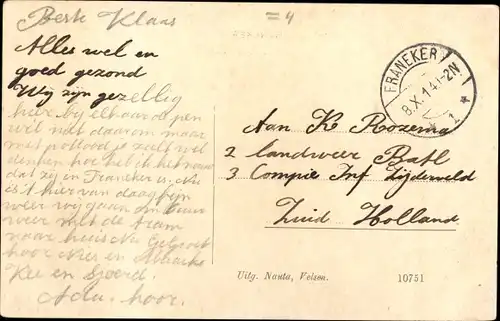 Beste Klaas
= 4
Alles wel en
goed gezond
Wij zijn gezellig
hier bij elkaar de pen
wil niet daarom maar
met potlood je zult wel
denken hoe het is
dat zij in Franeker is. Nu
is 't hier van daag fijn
weer wij gaan om
weer met de tram
naar huis Nu Gegroet
hoor Nies en
Kee en Sjoerd.
Ada. hoor.
FRANEKER
8.X.14.1-2N
* 1 *
Aan K Rozema
2 landweer Batl
3 Compie Inf Zijderveld
Zuid Holland
Uitg. Nauta, Velsen.
10751